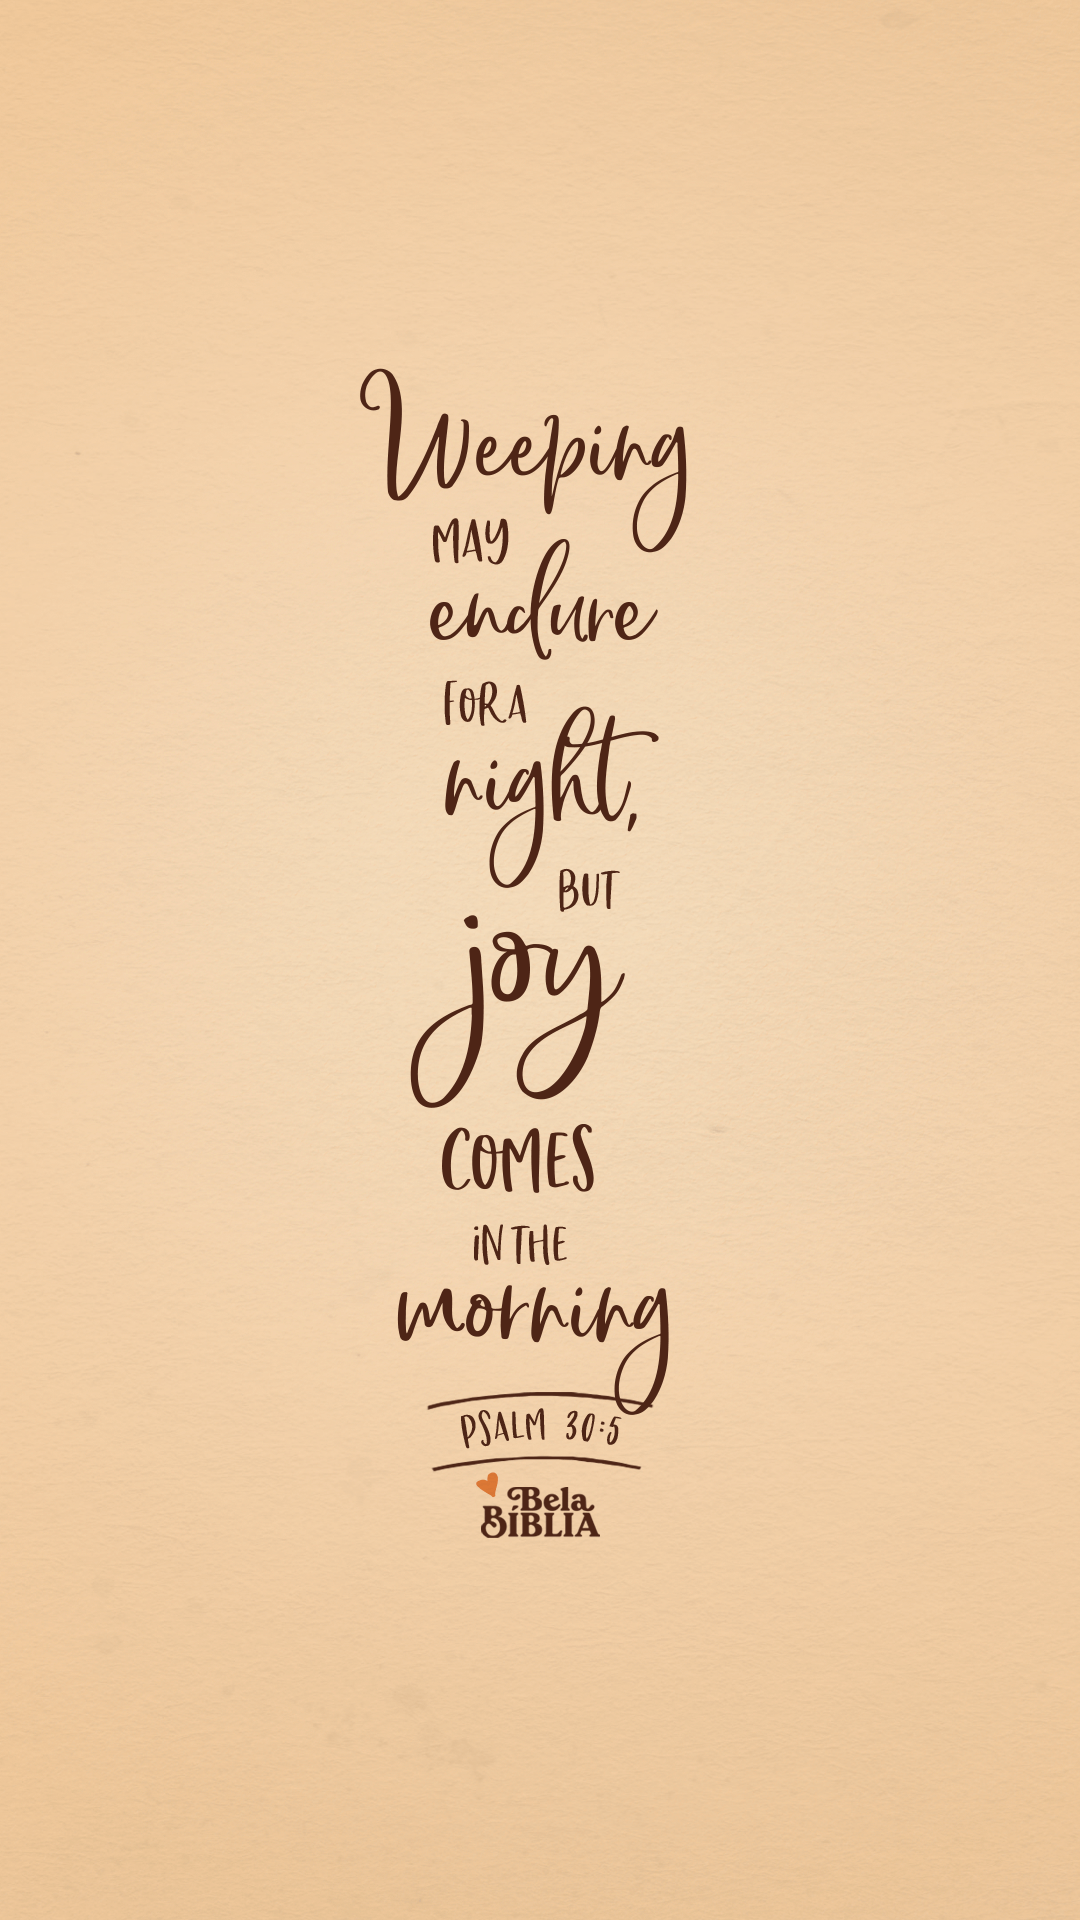 Weeping
MAY
endure
FOR A
night,
BUT
joy
COMES
iN THE
morning
PSALM 30:5
Bela
BÍBLIA